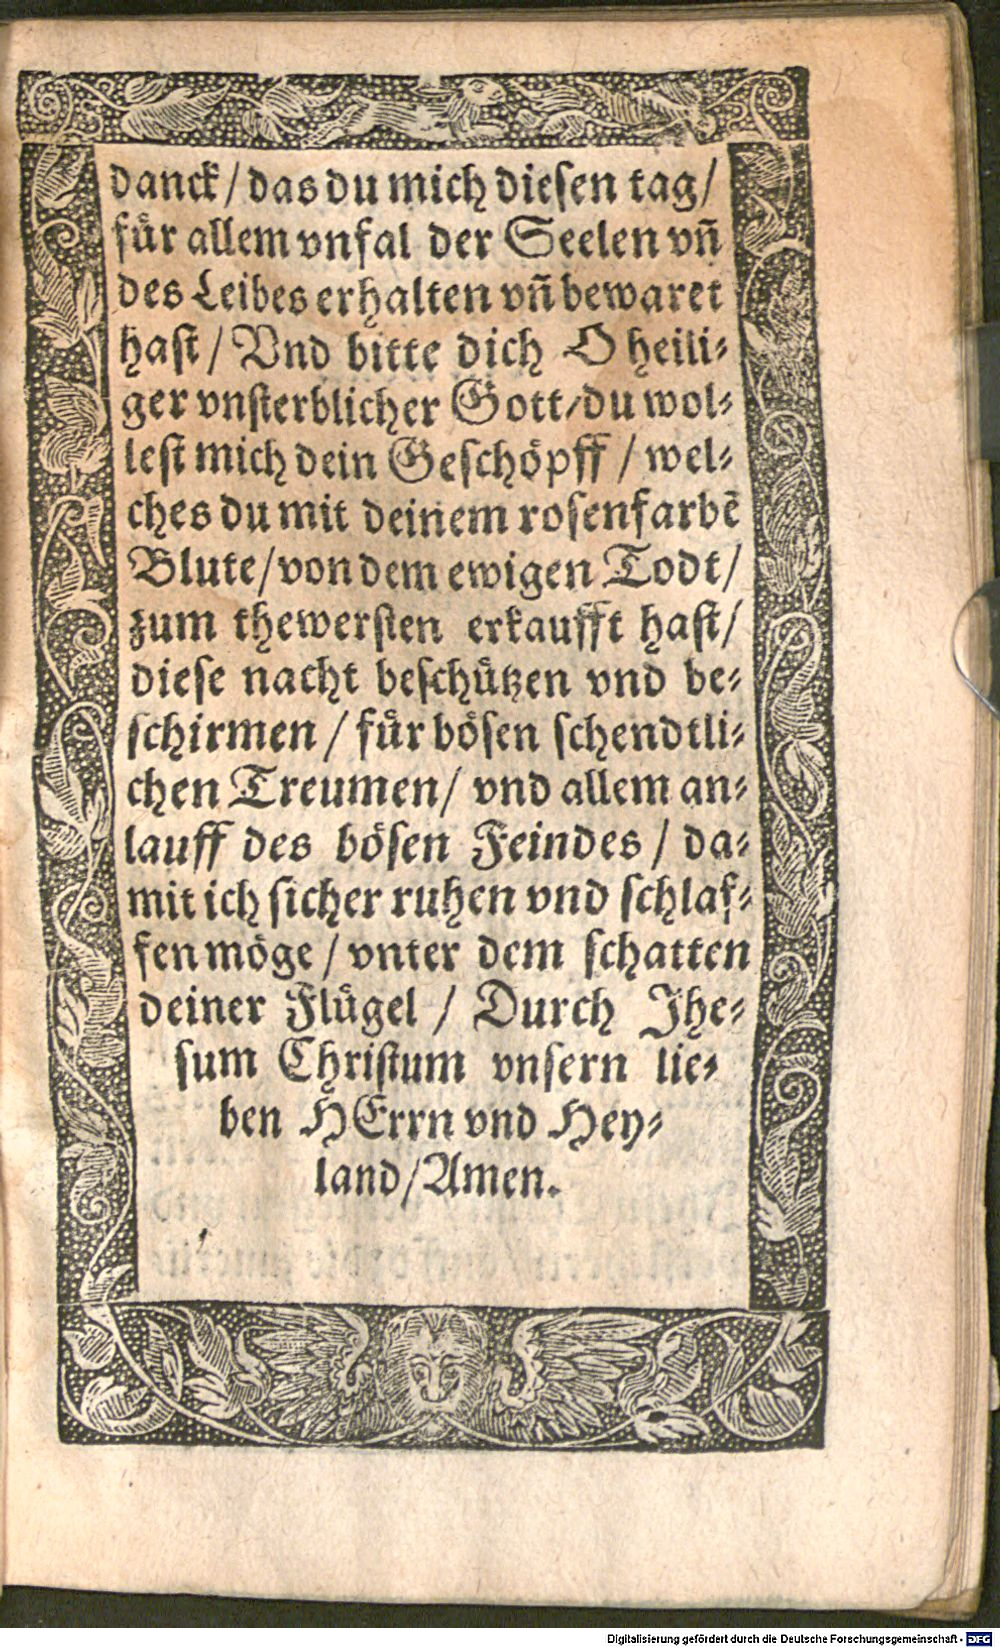 danck / das du mich diesen tag /
fuͤr allem vnfal der Seelen vñ
des Leibes erhalten vñ bewaret
hast / Vnd bitte dich O heili⸗
ger vnsterblicher Gott / du wol⸗
lest mich dein Geschoͤpff / wel⸗
ches du mit deinem rosenfarbẽ
Blute / von dem ewigen Todt /
zum thewersten erkaufft hast /
diese nacht beschuͤtzen vnd be⸗
schirmen / fuͤr boͤsen schendtli⸗
chen Treumen / vnd allem an⸗
lauff des boͤsen Feindes / da⸗
mit ich sicher ruhen vnd schlaf⸗
fen moͤge / vnter dem schatten
deiner Fluͤgel / Durch Jhe⸗
sum Christum vnsern lie⸗
ben HErrn vnd Hey⸗
land / Amen.
Digitalisierung gefördert durch die Deutsche Forschungsgemeinschaft - DFG